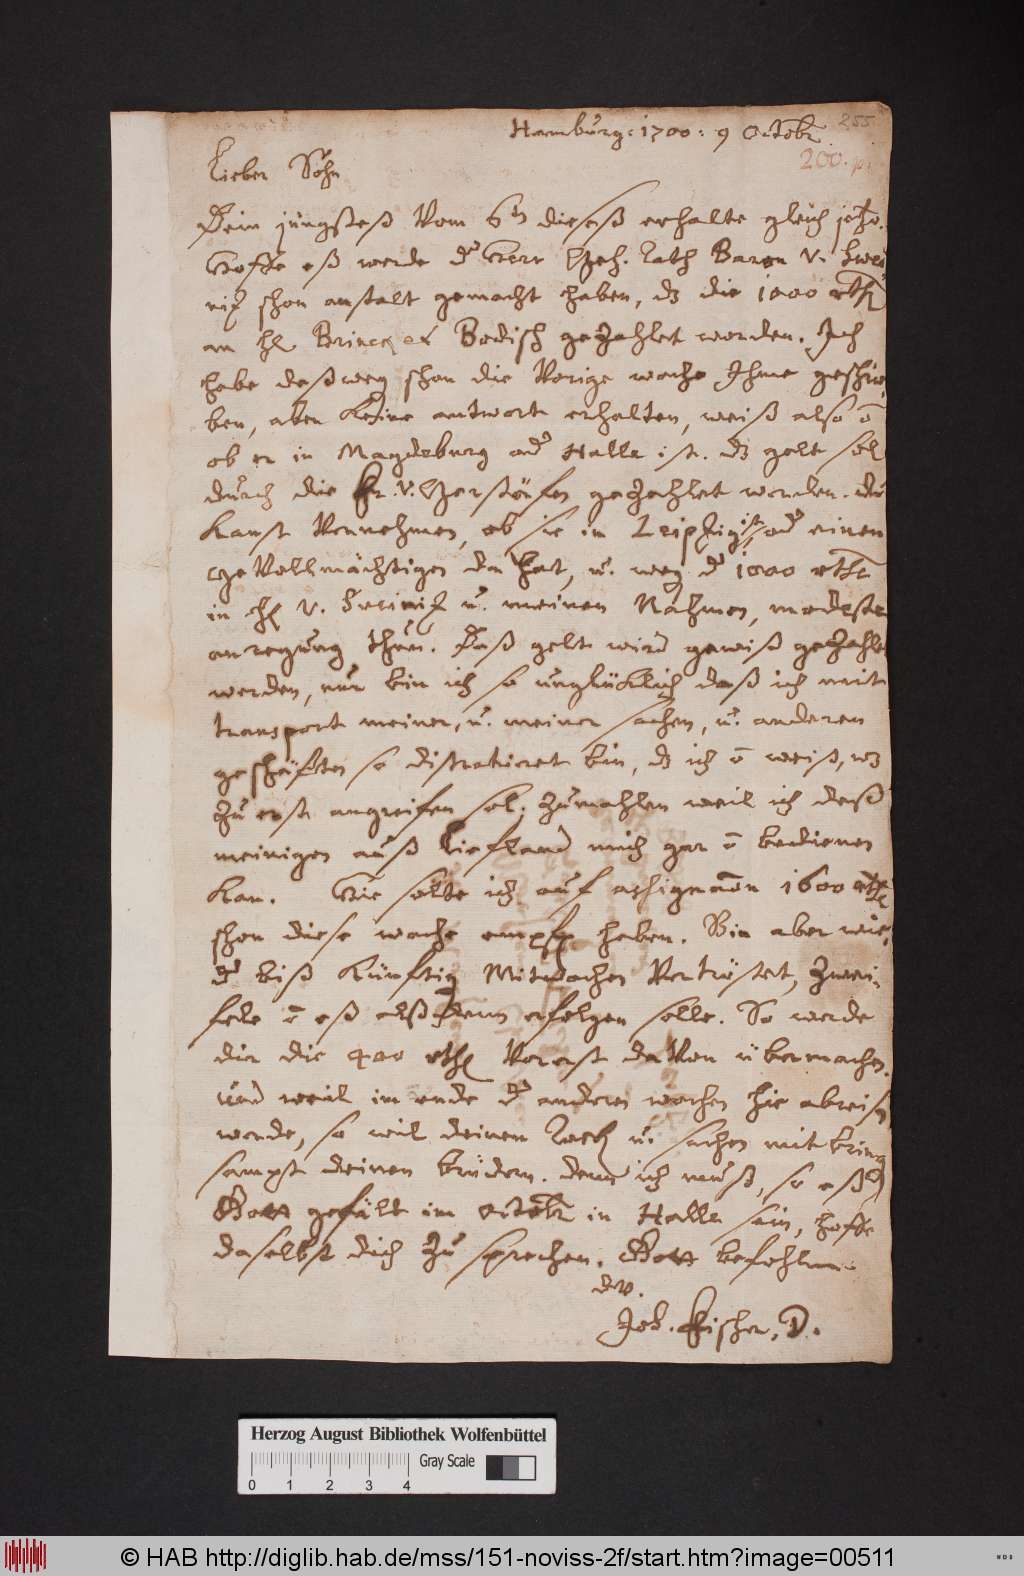 Hamburg: 1700: 9 Octobr
255
200.
Lieber Sohn
Dein jüngstes Vom 6tn dieses erhalte gleich jetzo.
Hoffe eß werde dr Herr Geh. Rath Baron V.
schon anstalt gemacht haben, dz die 1000 rthl
an Hl Brinck et Bodisch gezahlet worden. Ich
habe deßweg schon die Vorige woche Ihme geschrie,
ben, aber keine antwort erhalten, weiß also
ob er in Magdeburg odr Halle ist. dz gelt sol
durch die Fr. V. gezahlet werden. du
kanst Vernehmen, ob sie in Leipzig ist, odr einen
geVollmächtigen da hat, u. weg dr 1000 rthl
in Hl V. u. meinen Nahmen, modeste
anregung thun. Daß gelt wird gewiß gezahlt
werden, nur bin ich so unglücklich daß ich mit
transport meiner, u. meiner sachen, u. anderen
geschäften so distrahiret bin, dz ich weiß, wz
zu erst angreifen sol, zumahlen weil ich deß
meinigen auß Liefland mich gar bedienen
kan. Hie solte ich auf assignaon 1600 rthl
schon diese woche empf haben. Bin aber wie,
dr biß künftig Mitwochen Vertröstet, zwei,
fele eß alßdenn erfolgen solle. So werde
dir die 400 rthl Vorerst daVon übermachen.
Und weil im ende dr anderen wochen hie abreisen
werde, so wil deinen Rock u. sachen mitbring
sampt deinen brüdern. denn ich muß, so eß
Gott gefält im Octobr in Halle sein, hoffe
daselbst dich zu sprechen. Gott befohlen.
dV.
Joh. Fischer, D.
Herzog August Bibliothek Wolfenbüttel
Gray Scale
0 1 2 3 4
© HAB http://diglib.hab.de/mss/151-noviss-2f/start.htm?image=00511